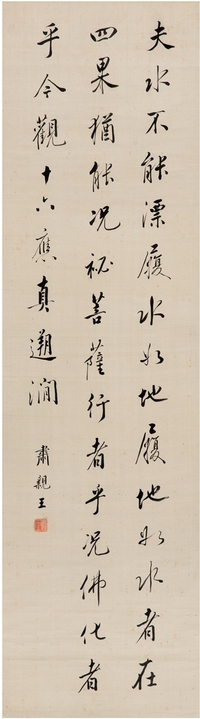 夫水不能漂履水如地履地如水者在
四果猶能況祕菩薩行者乎況佛化者
乎今觀十六應真遡澗
肅親王